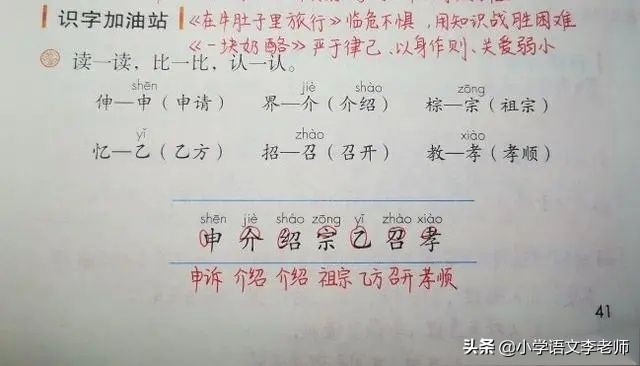 识字加油站 《在牛肚子里旅行》临危不惧,用知识战胜困难
《一块奶酪》严于律己、以身作则、关爱弱小
读一读,比一比,认一认。
shēn jiè shào zōng
伸—申(申请) 界—介(介绍) 棕—宗(祖宗)
yǐ zhào xiào
忆—乙(乙方) 招—召(召开) 教—孝(孝顺)
shēn jiè shào zōng yǐ zhào xiào
申 介 绍 宗 乙 召 孝
申诉 介绍 介绍 祖宗 乙方 召开 孝顺
41
头条 @小学语文李老师